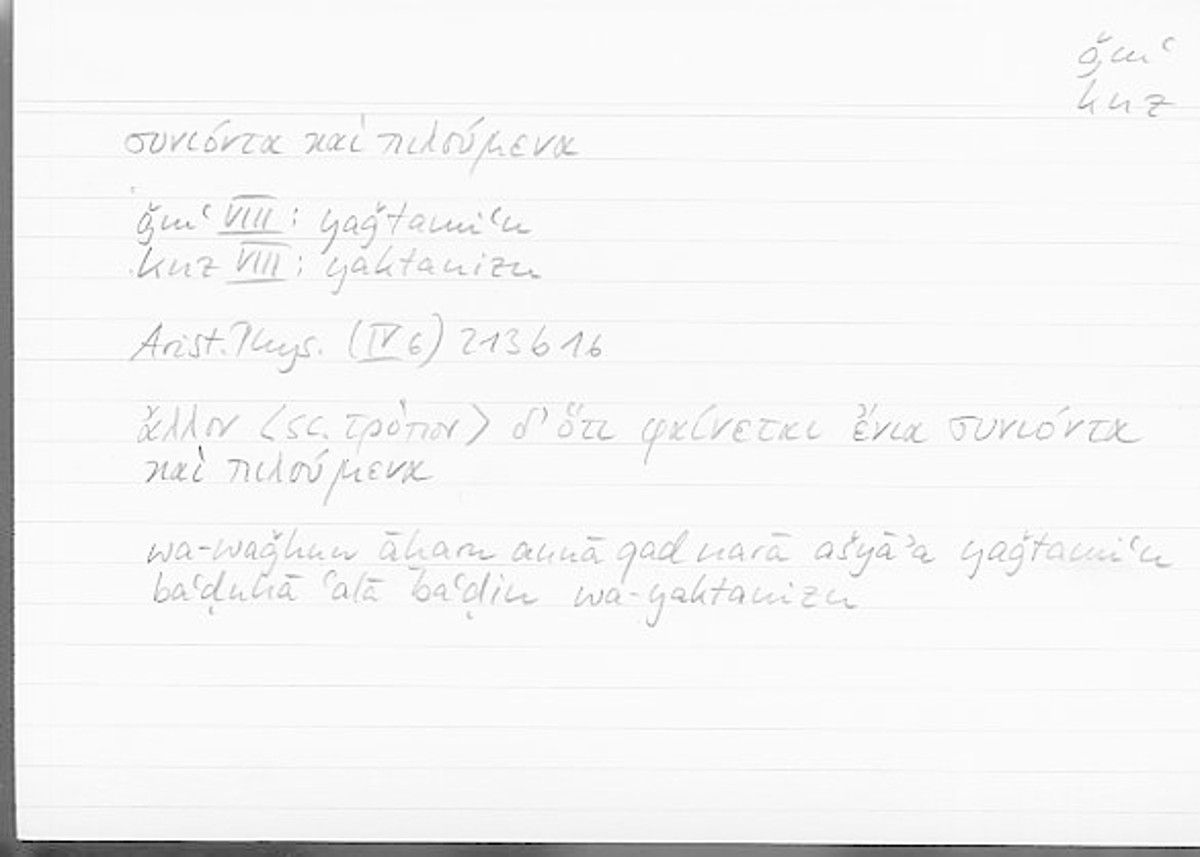 ǧmʿ
knz
συνιόντα καὶ πιλούμενα
ǧmʿ VIII : yaǧtamiʿu
knz VIII : yaktanizu
Arist. Phys. (IV 6) 213 b 16
ἄλλον <sc. τρόπον> δ' ὅτι φαίνεται ἔνια συνιόντα
καὶ πιλούμενα
wa-waǧhun āḫaru annā qad narā ašyāʾa yaǧtamiʿu
baʿḍuhā ʿalā baʿḍin wa-yaktanizu